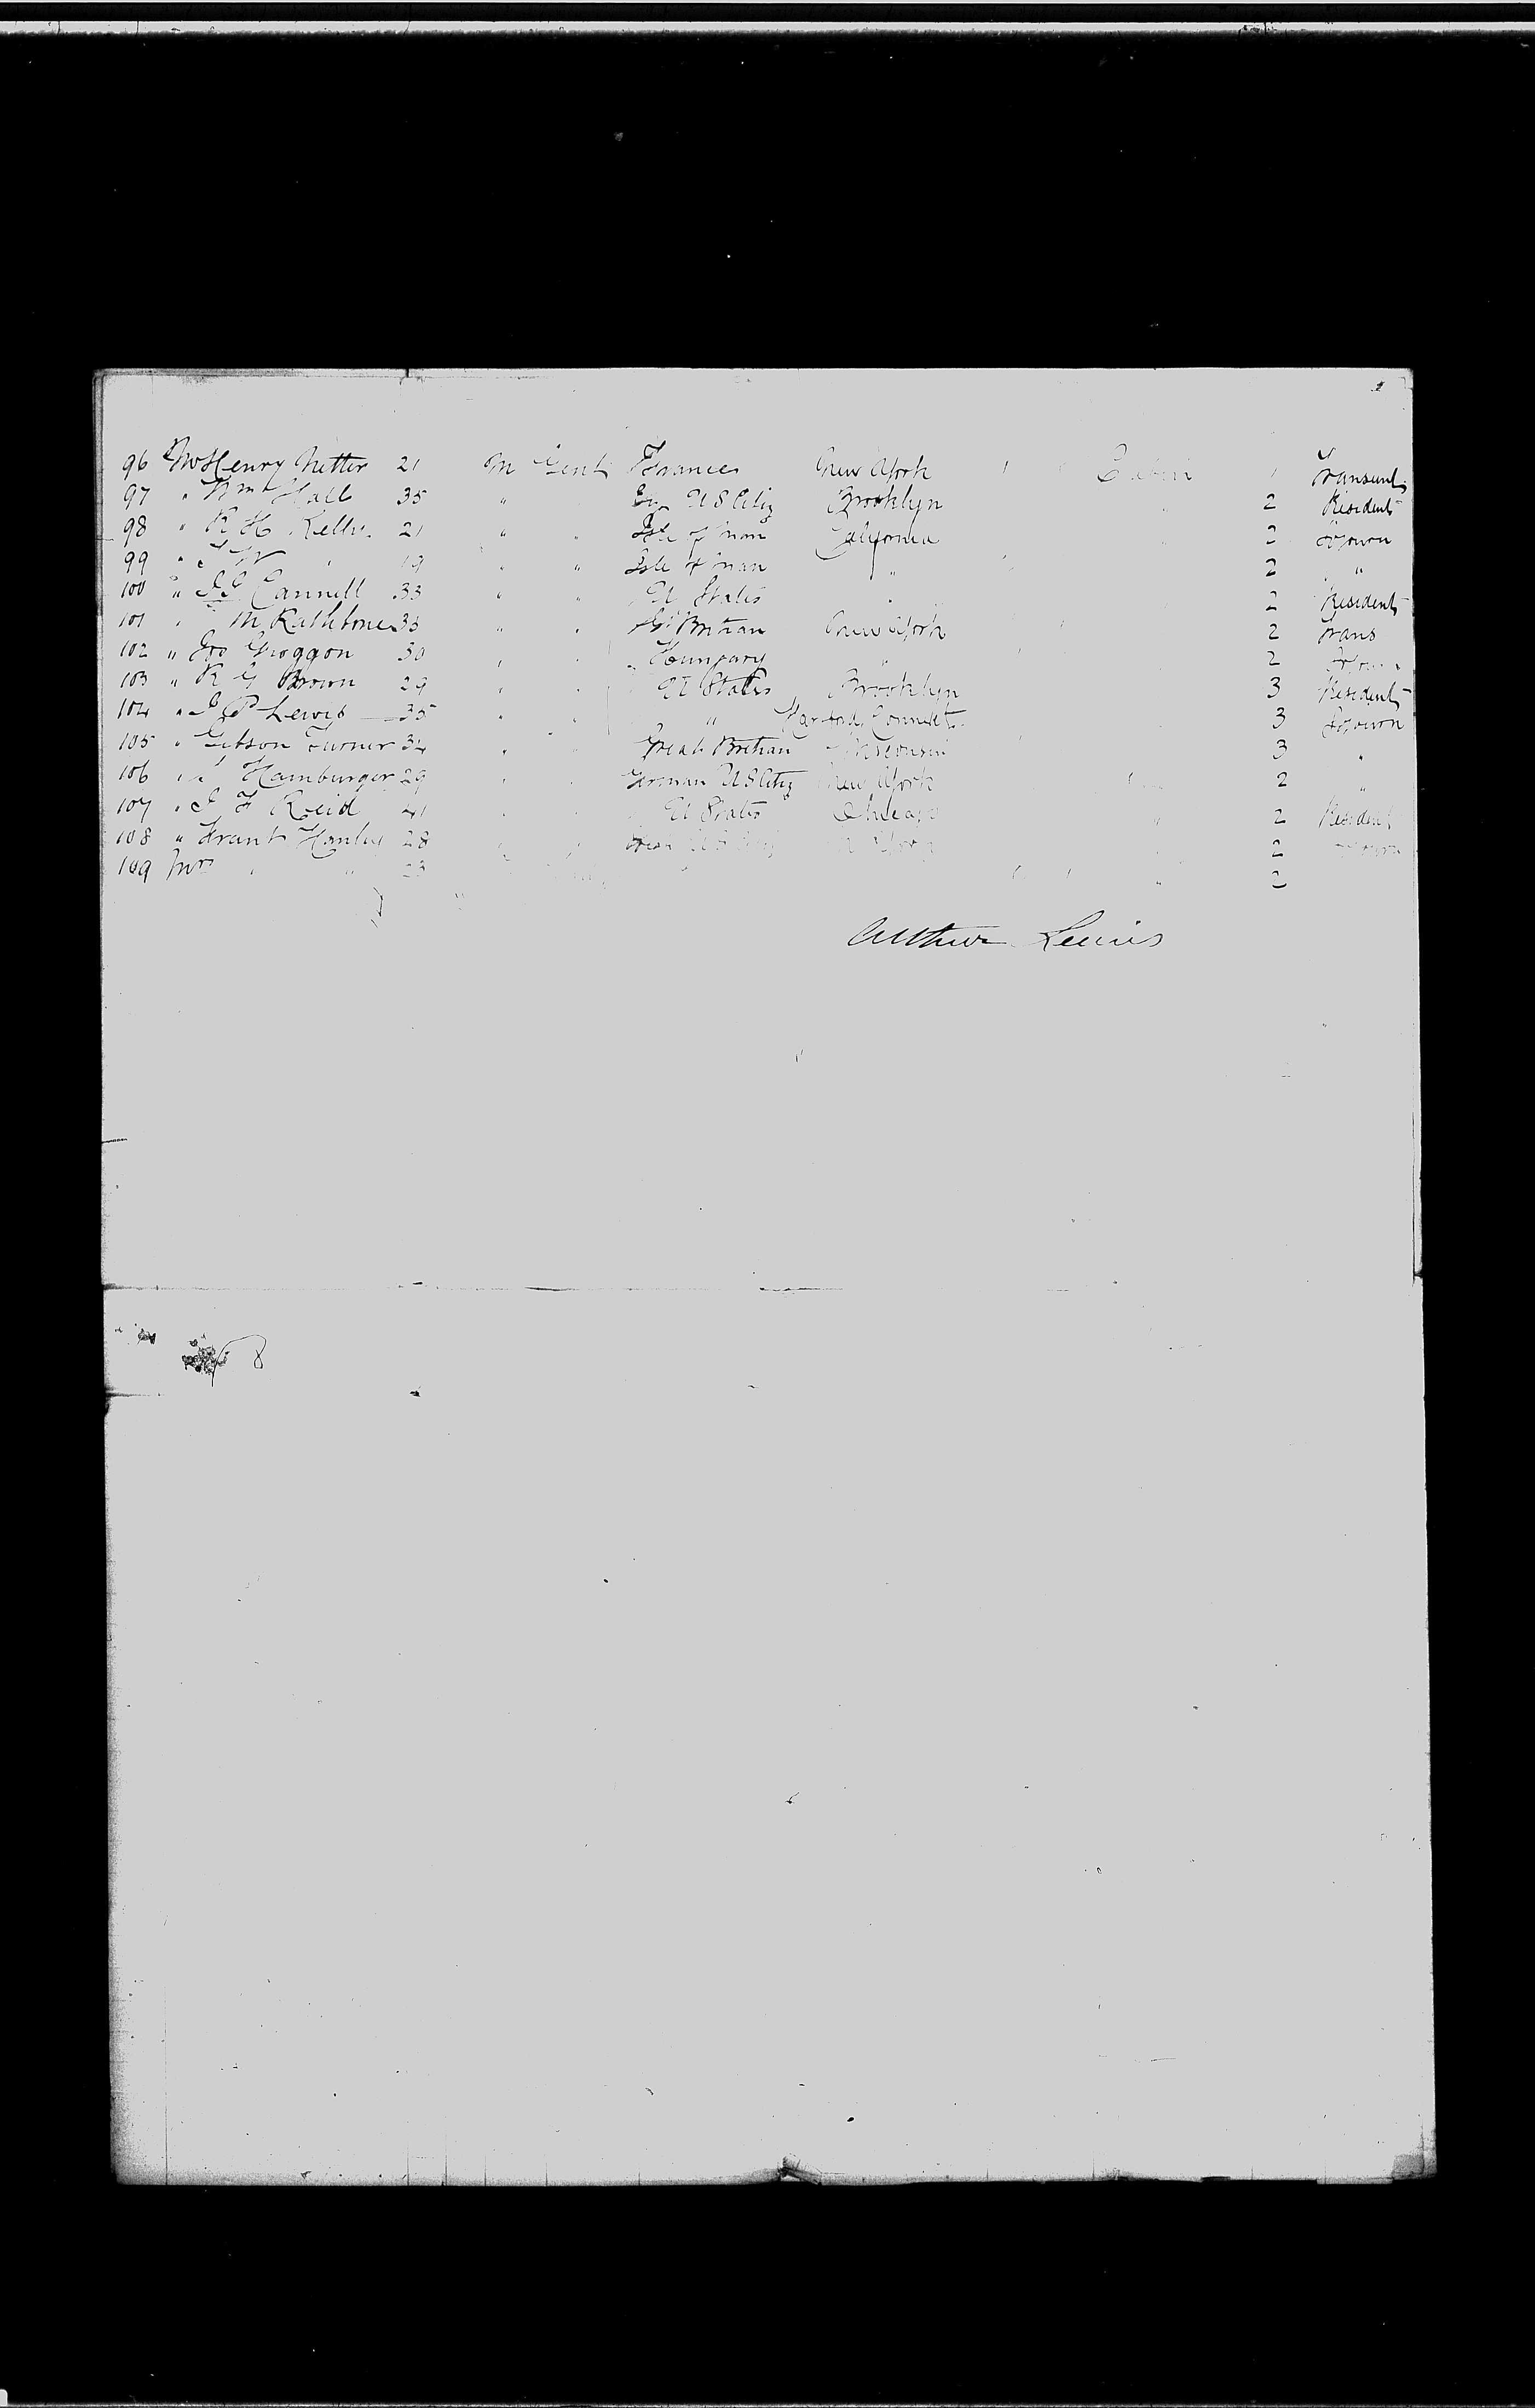 96 Mr Henry Netter 21 M Gent France New York Cabin 1 Transient
97 " Wm Hall 35 " Eng U S Citiz Brooklyn " 2 Resident
98 " R H Kelly 21 " " Isle of Man California " 2 Sojourn
99 " J W " 19 " " Isle of Man " 2 "
100 " J J Cannell 33 " " U States " 2 Resident
101 " M Rathbone 33 " " Gt Britian New York 2 Trans
102 " Jos Groggon 30 " " Hungary " 2 Sojourn
103 " R G Brown 29 " " U States Brooklyn 3 Resident
104 " J P Lewis 35 " " " Harford Connect 3 Sojourn
105 " Gibson Turner 34 " " Great Britian Wisconsin 3 "
106 " Hamburger 29 " German U S Citiz New York 2 "
107 " J F Reid 41 " U States Chicago " 2 Resident
108 " Frank Hanley 28 " U S York 2
109 Mrs " " 23 " 2
Arthur Lewis
8